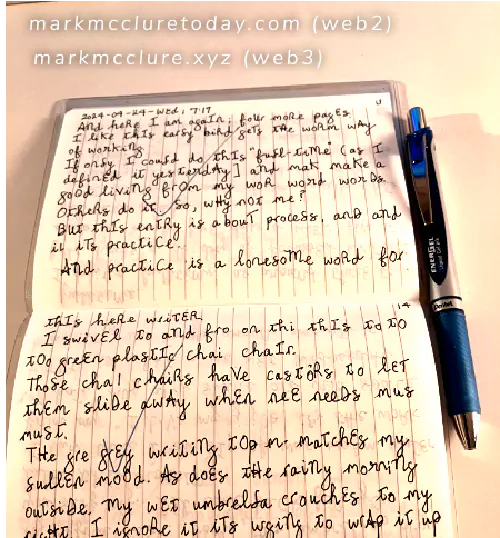 markmccluretoday.com (web2)
markmcclure.xyz (web3)
2024-04-24-Wed, 7:17
And here I am again; four more pages
I like this early bird gets the worm way
of working.
If only I could do this "full-time" (as I
defined it yesterday) and mak make a
good living from my wor word words.
Others do it so, why not me?
But this entry is about process, and and
it its practice.
And practice is a lonesome word for
this here writer.
I swivel to and fro on thi this to to
too green plastic chai chair.
Those chai chairs have castors to let
them slide away when nee needs mus
must.
The gre grey writing top m matches my
sullen mood. As does the rainy morning
outside. My wet umbrella crouches to my
right. I ignore it its urging to wrap it up
EnerGel
Pentel